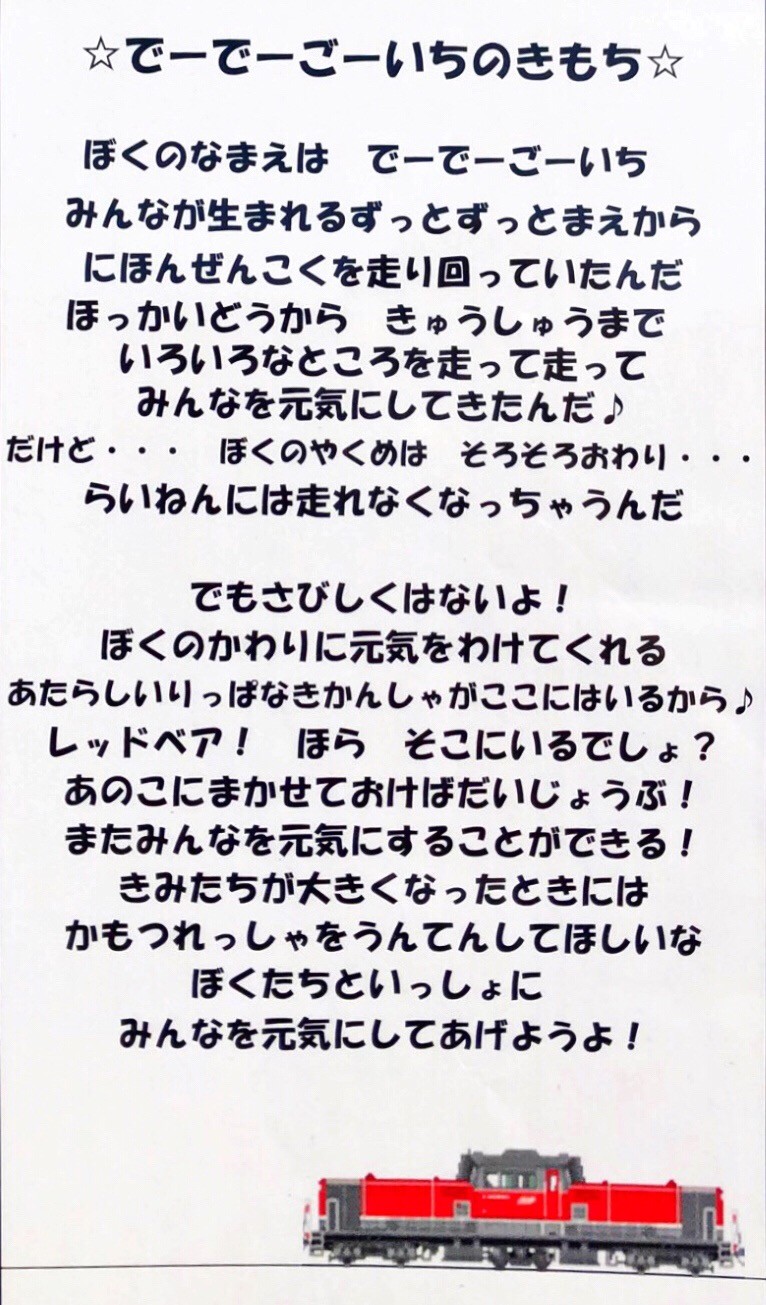 ☆でーでーごーいちのきもち☆
ぼくのなまえは　でーでーごーいち
みんなが生まれるずっとずっとまえから
にほんぜんこくを走り回っていたんだ
ほっかいどうから　きゅうしゅうまで
いろいろなところを走って走って
みんなを元気にしてきたんだ♪
だけど・・・　ぼくのやくめは　そろそろおわり・・・
らいねんには走れなくなっちゃうんだ
でもさびしくはないよ！
ぼくのかわりに元気をわけてくれる
あたらしいりっぱなきかんしゃがここにはいるから♪
レッドベア！　ほら　そこにいるでしょ？
あのこにまかせておけばだいじょうぶ！
またみんなを元気にすることができる！
きみたちが大きくなったときには
かもつれっしゃをうんてんしてほしいな
ぼくたちといっしょに
みんなを元気にしてあげようよ！